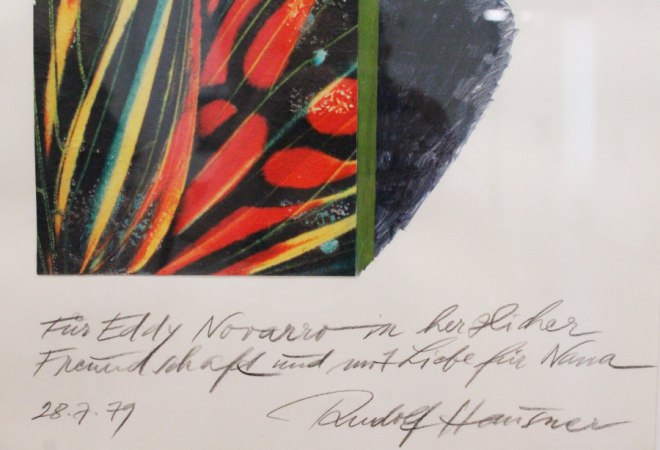 Für Eddy Novarro in herzlicher
Freundschaft und mit Liebe für Nana
28.7.79
Rudolf Hausner